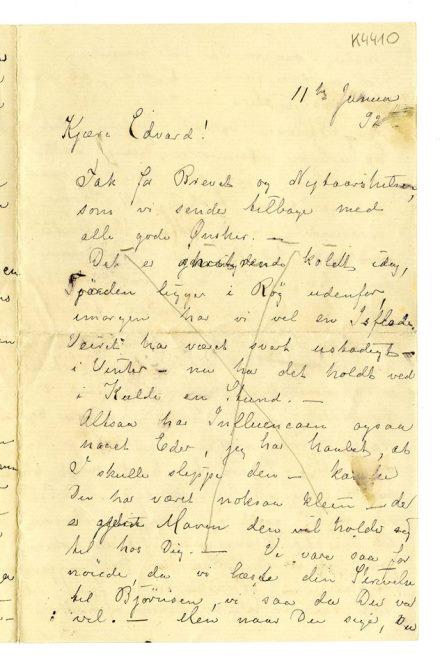 K4410
11te Januar
92
Kjære Edvard!
Tak for Brevet og Nytaarshilsen,
som vi sende tilbage med
alle gode Ønsker. —
Det er koldt idag,
Fjorden ligger i Røg udenfor,
imorgen har vi vel en Isflade.
Veiret har været svært ustadigt
i Vinter — nu har det holdt ved
i Kulde en Stund. —
Altsaa har Influencaen ogsaa
naaet Eder, jeg har haabet, at
I skulle slippe den —
Du har været noksaa klein — det
er Maven den vil holde sig
til hos Dig. — Vi vare saa for
nøiede, da vi læste din Skrivelse
til Bjørnsen, vi saa da Du var
vel. — Men naar Du siger, Du